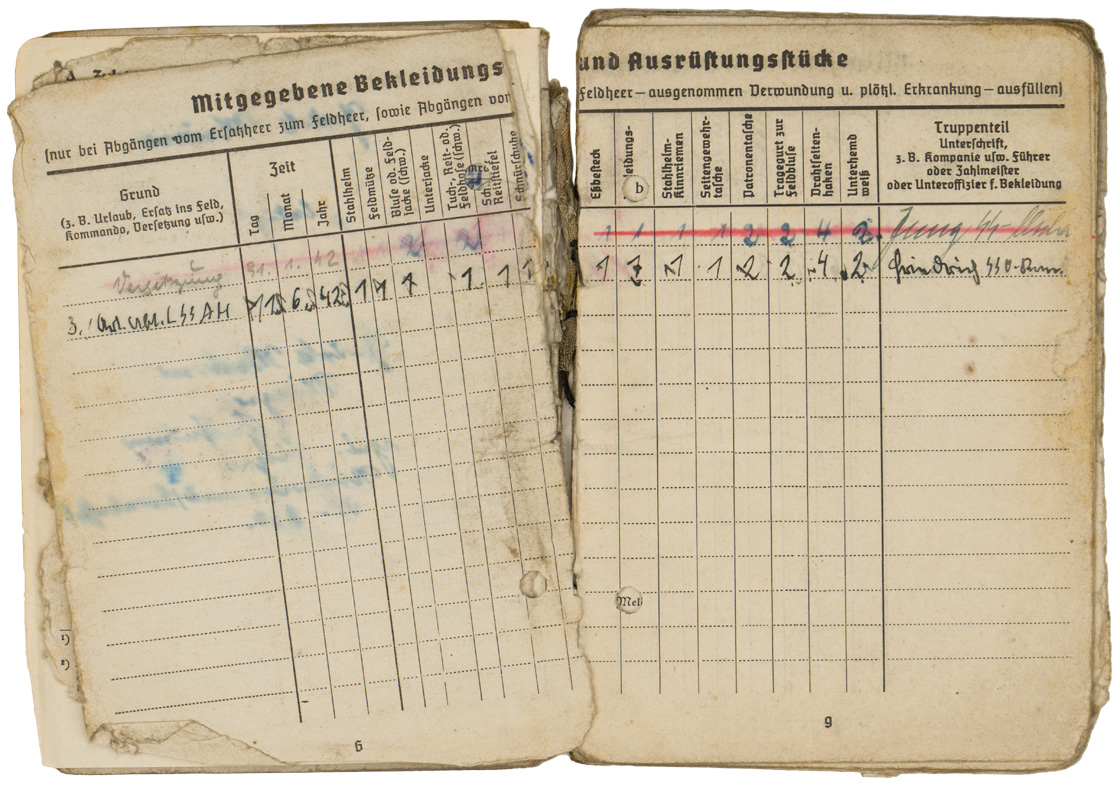 Mitgegebene Bekleidungs
(nur bei Abgängen vom Ersatzheer zum Feldheer, sowie Abgängen vor
Grund
(z. B. Urlaub, Ersatz ins Feld,
Kommando, Versetzung usw.)
Zeit
Tag
Monat
Jahr
Stahlhelm
Feldmütze
Bluse od. Feld-
jacke (schw.)
Unterjacke
Tuch-, Reit- od.
Feldhose (schw.)
Reitstiefel
Schnürschuhe
Versetzung 31. 1. 42 2 2
3. L SS AH 11 6. 42 1 1 1 1 1 1
1)
2)
6
und Ausrüstungsstücke
Feldheer — ausgenommen Verwundung u. plötzl. Erkrankung — ausfüllen)
Eßbesteck
leidungs-
b
Stahlhelm-
kinnriemen
Seitengewehr-
tasche
Patronentasche
Tragegurt zur
Feldbluse
Drahtseiten-
haken
Unterhemd
weiß
Truppenteil
Unterschrift,
z. B. Kompanie usw. Führer
oder Zahlmeister
oder Unteroffizier f. Bekleidung
1 1 1 1 2 2 4 2. Jung SS
1 1 1 1 2 2 4 2 Friedrich SS O-
Mel
9